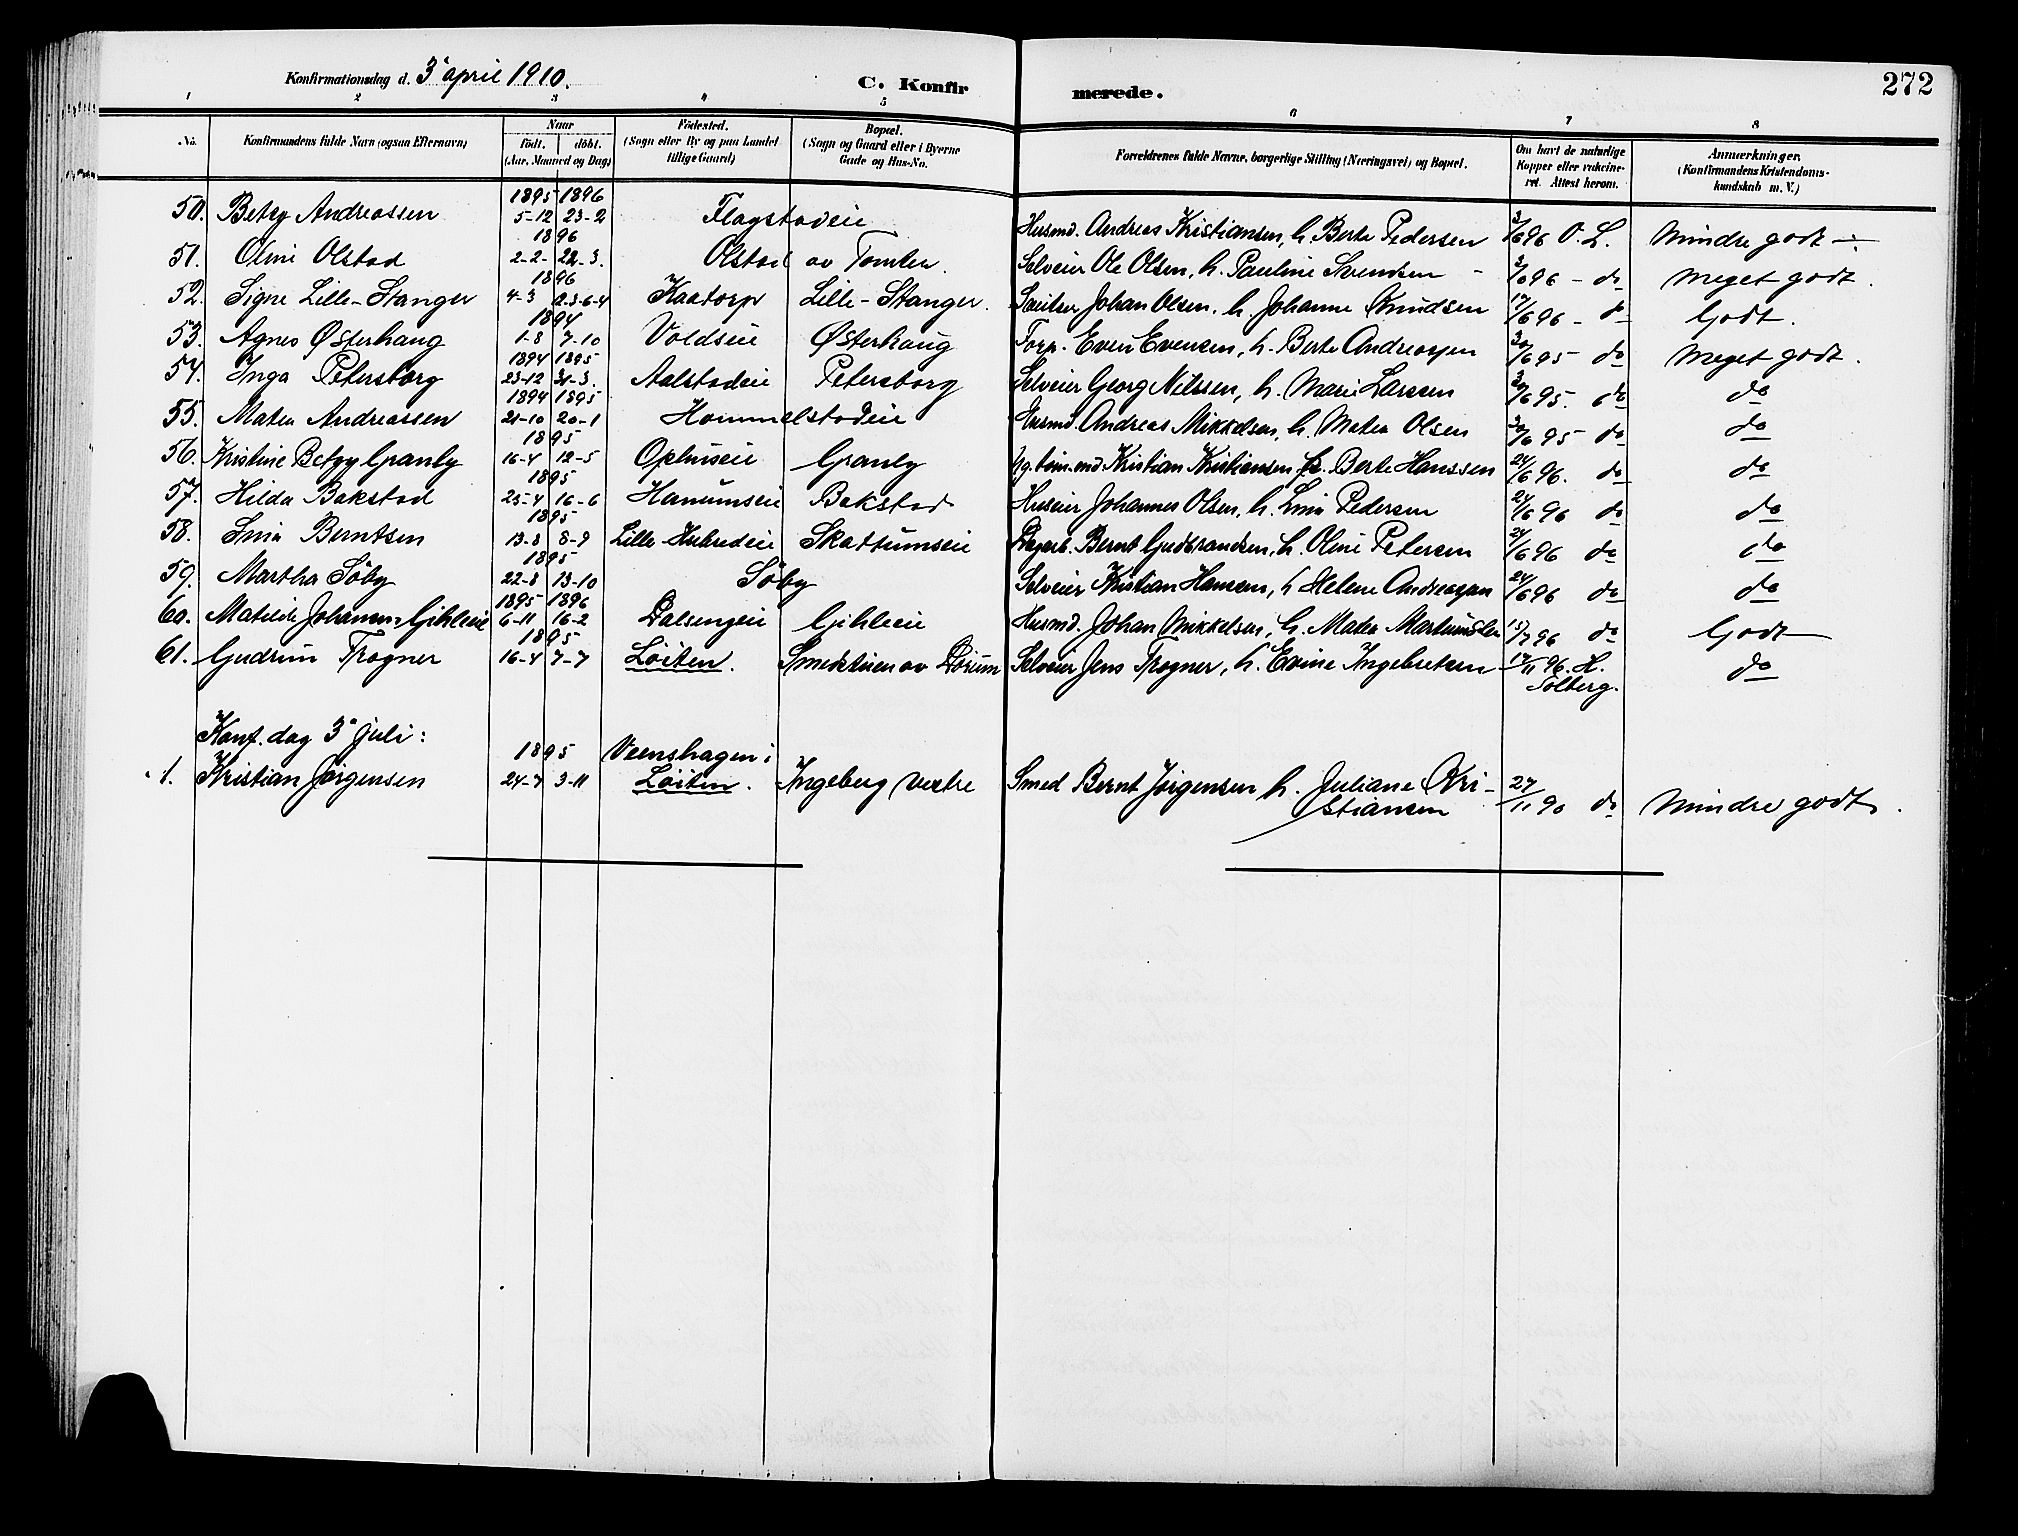 Konfirmationsdag d. 3' april 1910. C. Konfir merede. 272
1 2 3 4 5 6 7 8
No. Konfirmandens fulde Navn (ogsaa Efternavn) Naar Födt. döbt. (Aar, Maaned og Dag) Födested. (Sogn eller By og paa Landet tillige Gaard) Bopæl. (Sogn og Gaard eller i Byerne Gade og Hus-No. Forældrenes fulde Navne, borgerlige Stilling (Næringsvei) og Bopæl. Om havt de naturlige Kopper eller vakcineret. Attest herom. Anmærkninger. (Konfirmandens Kristendomskundskab m. V.)
1895 1896
50. Betzy Andreassen 5-12 23-2 Flagstadeie Husmd. Andreas Kristiansen, h. Berte Pedersen 3/6 96 O. L. Mindre godt
1896
51. Oline Olstad 2-2- 22-3. Olstad av Tomter. Selveier Ole Olsen, h. Pauline Svendsen - 3/6 96 - do Meget godt.
1896
52. Signe Lille-Stanger 4-3 6-4 Kaatorp Lille-Stanger. Johan Olsen, h. Johanne Knudsen 17/6 96 - do Godt.
1894
53. Agnes Østerhaug 1-8 7-10 Voldseie Østerhaug Torp. Even Evensen, h. Berte Andreassen 30/6 95 do Meget godt.
1894 1895
54. Inga Petersborg 23-12 31-3. Aalstadeie Petersborg Selveier Georg Nilssen, h. Marie Larssen 30/6 95. do do
1894 1895
55. Matea Andreassen 21-10 20-1 Hommelstadeie Husmd. Andreas Mikkelsen, h. Matea Olsen 30/6 95 do do
1895
56. Kristine Betzy Granly 16-4 12-5 Ophuseie Granly Kristian Kristiansen h. Berte Hanssen 24/6 96. do do
1895
57. Hilda Bakstad 25-4 16-6 Hanumseie Bakstad Huseier Johannes Olsen, h. Lina Pedersen 24/6 96 do do
1895
58. Lina Berntsen 13-8 8-9 Lille- Skattumseie Dagarb. Bernt Gudbrandsen, h. Oline Petersen 24/6 96 do do
1895
59. Martha Söby 22-8 13-10 Söby Selveier Kristian Hansen, h Helene Andreassen 24/6 96 do do
1895 1896
60. Matilde Johansen-Gihleie 6-11 16-2 Dalsengeie Gihleie Husmd. Johan Mikkelsen, h. Matea 15/7 96 do Godt
1895
61. Gudrun Trogner 16-4 7-7 Löiten. Smedstuen av Dörum Selveier Jens Trogner, h. Evine Ingebretsen 17/11 96. H. Solberg. do
Konf. dag 3' juli:
1895 Veenshagen i
1. Kristian Jörgensen 24-7 3-11 Löiten. Ingeberg vestre Smed Bernt Jörgensen h. Juliane Kri-
stiansen 27/11 90 do Mindre godt.